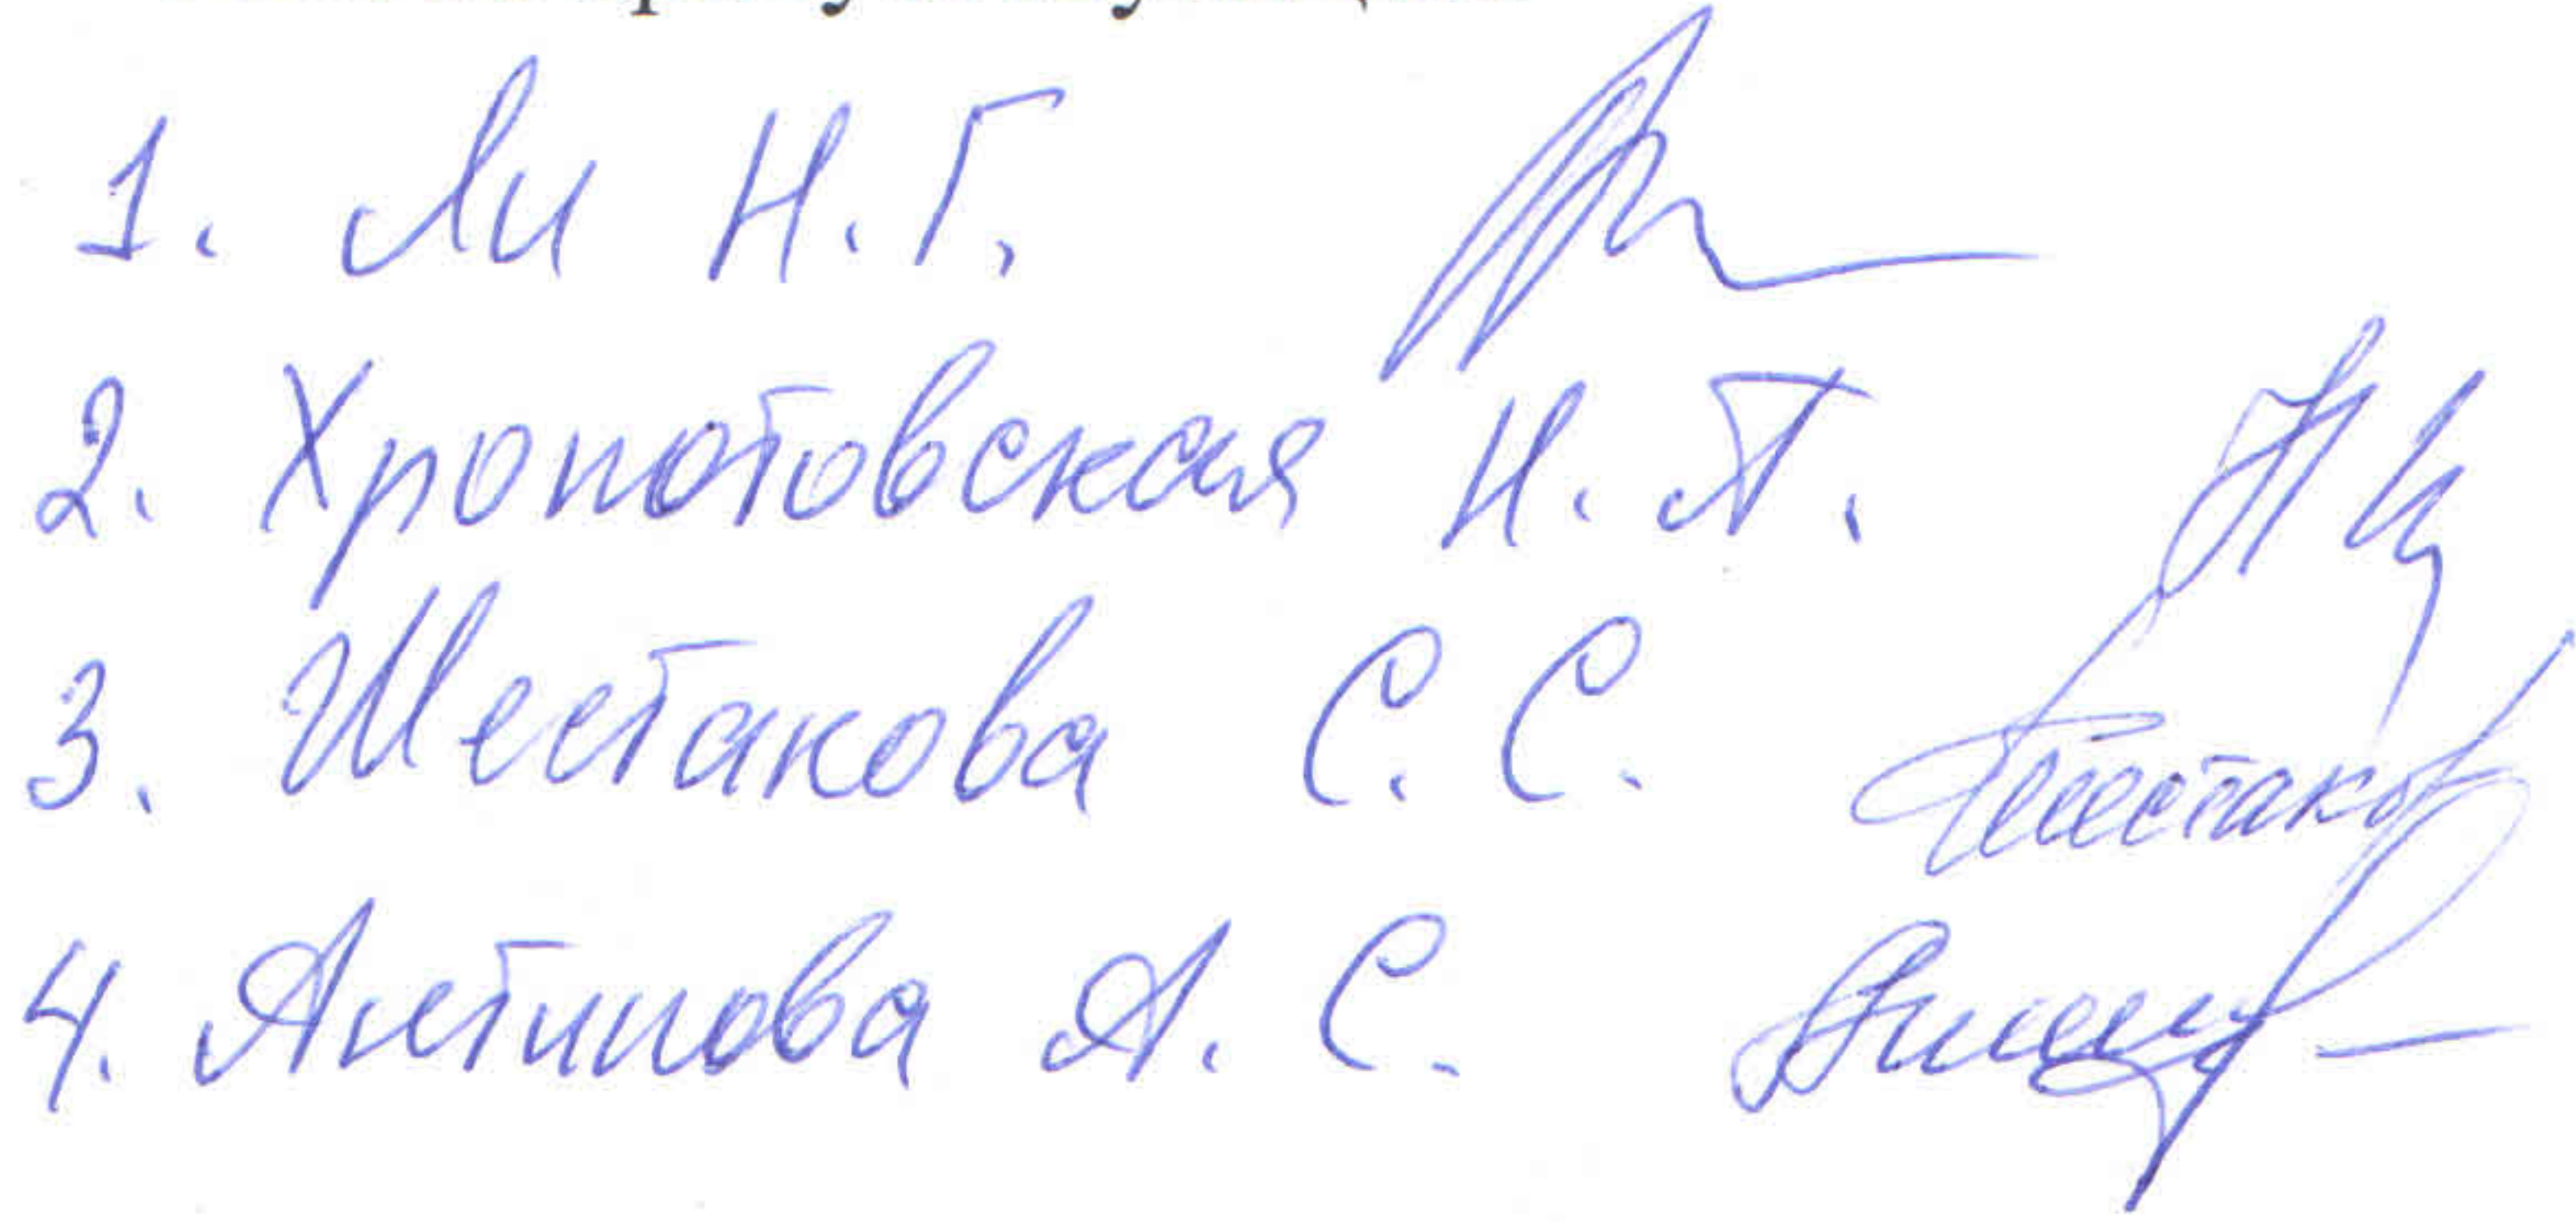 1. Ли Н. Г.
2. Хропотовская Н. П.
3. Шестакова С. С. Шестаков
4. Антипова А. С.